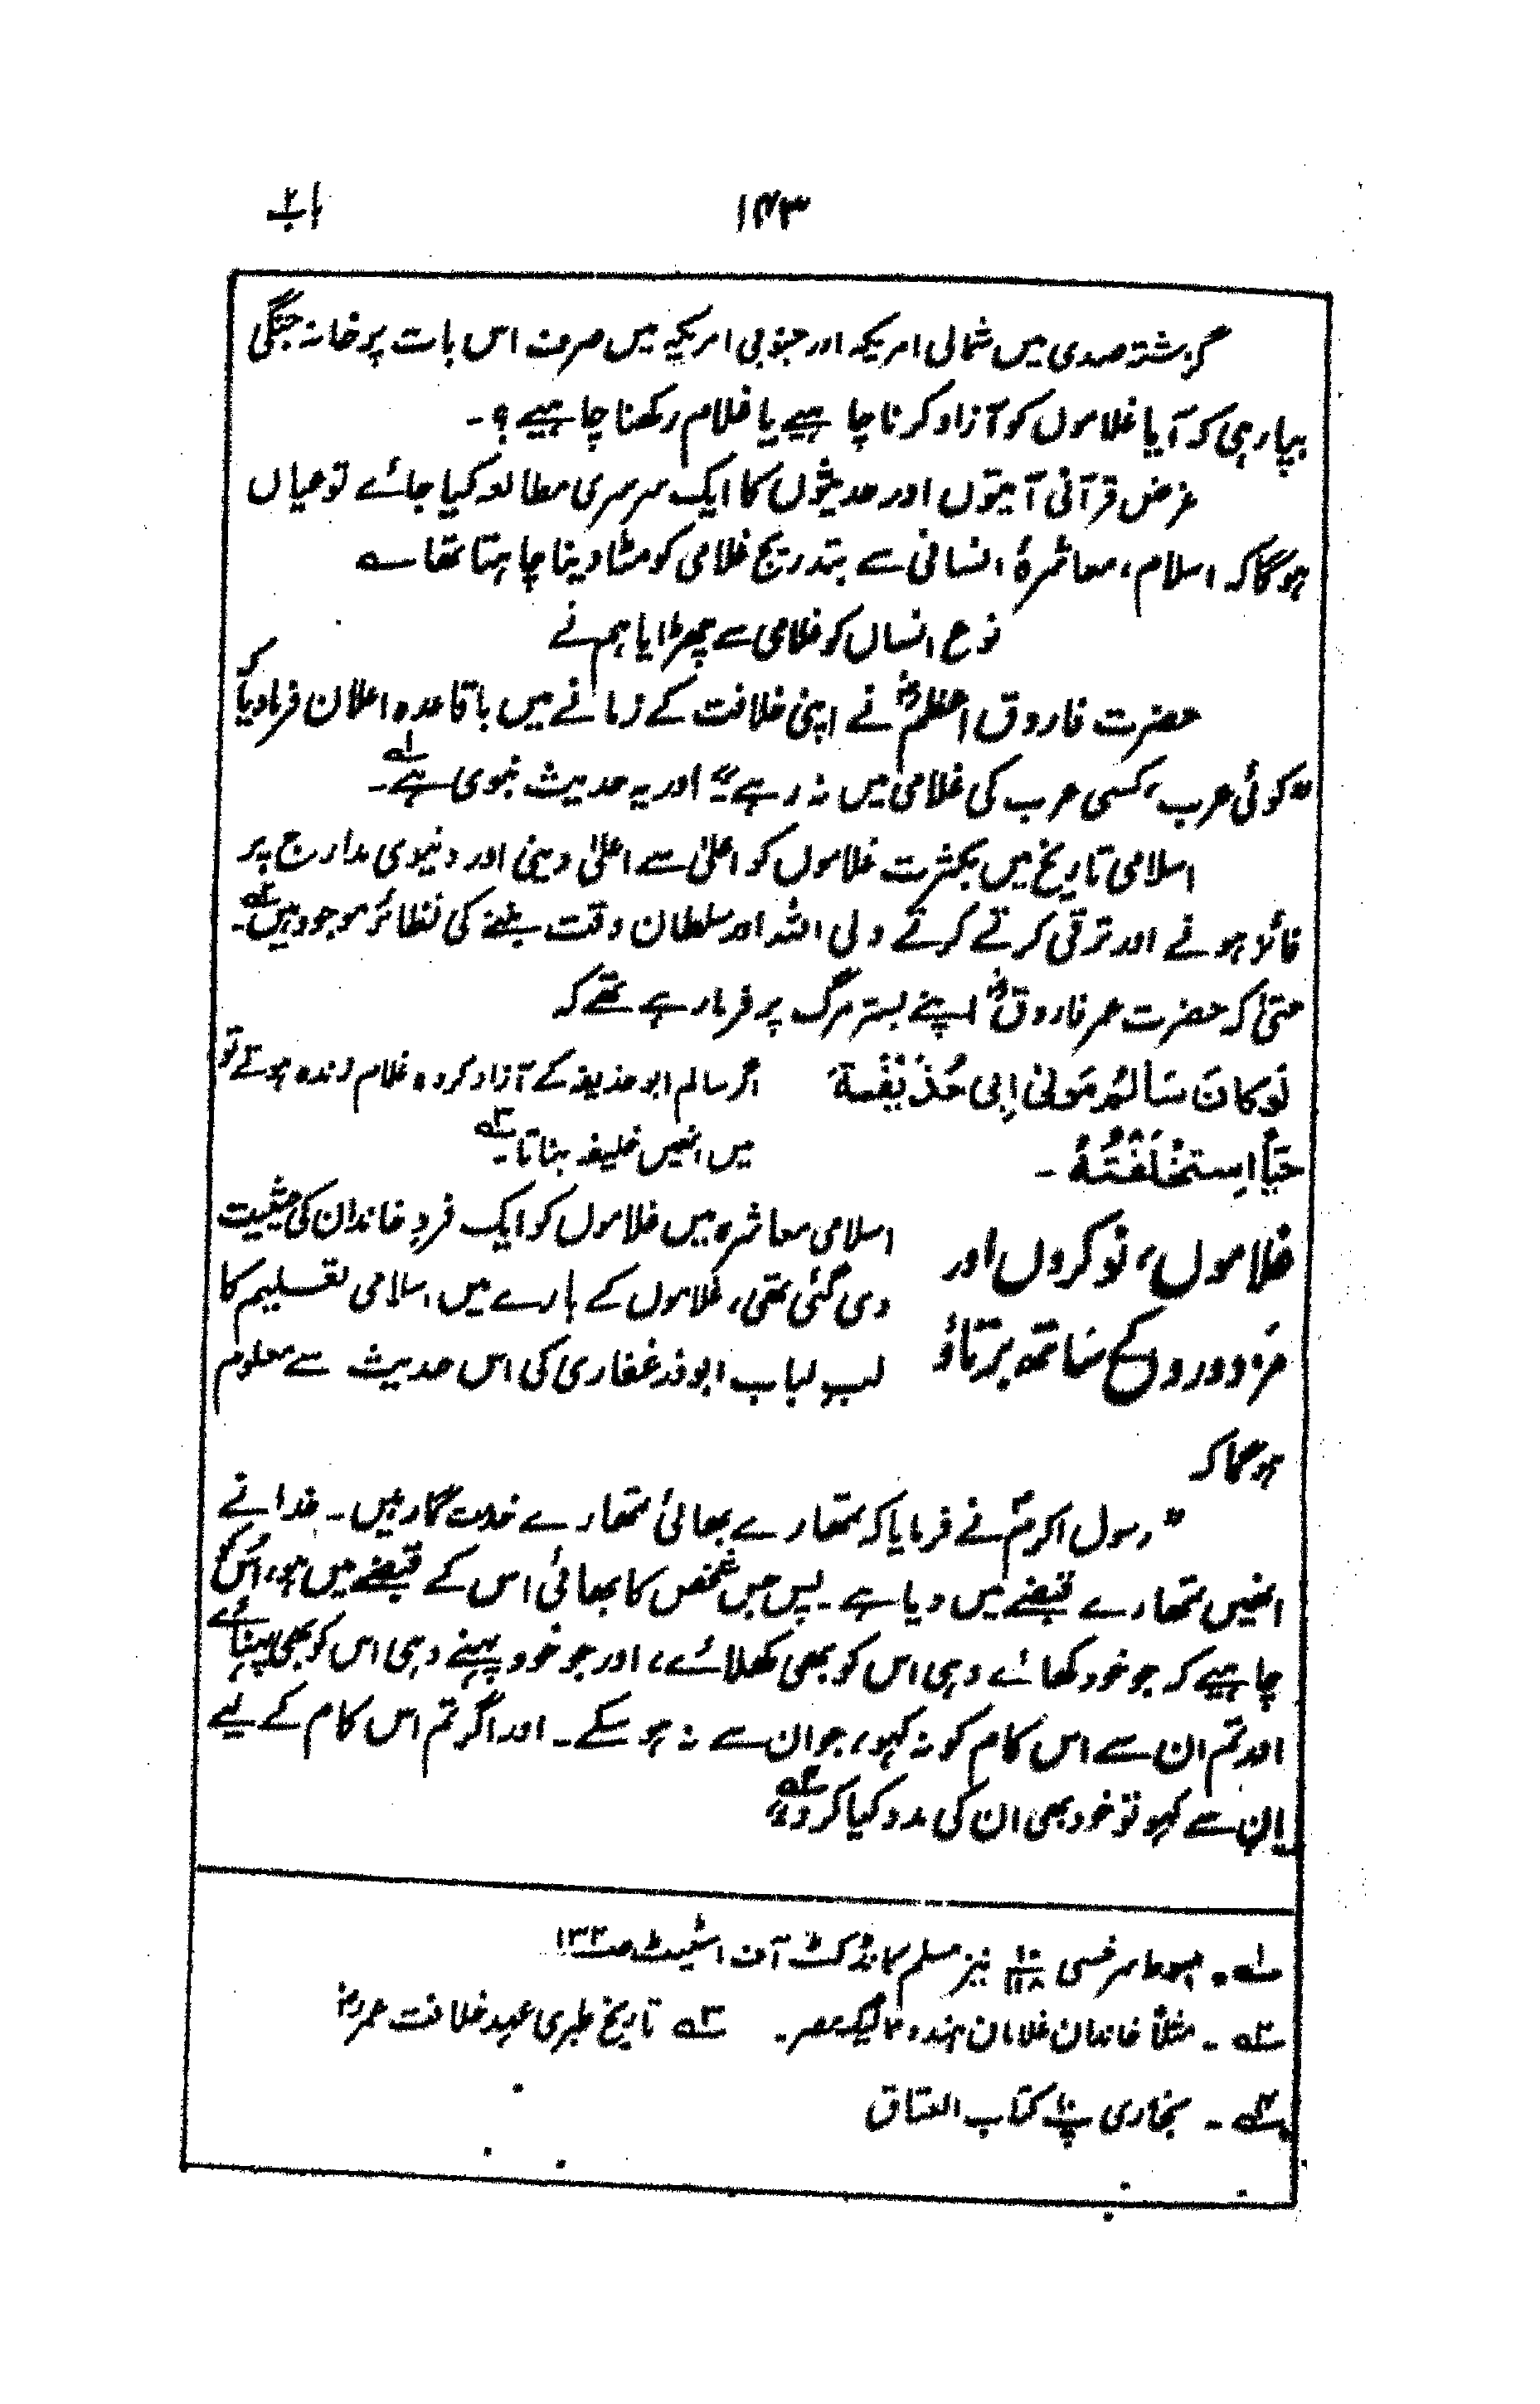 ۱۴۳
باب ۲
گزشتہ صدی میں شمالی امریکہ اور جنوبی امریکہ میں صرف اس بات پر خانہ جنگی
بپا رہی کہ آیا غلاموں کو آزاد کرنا چاہیے یا غلام رکھنا چاہیے ؟۔
غرض قرآنی آیتوں اور حدیثوں کا ایک سرسری مطالعہ کیا جائے تو عیاں
ہوگا کہ اسلام، معاشرۂ انسانی سے بتدریج غلامی کو مٹا دینا چاہتا تھا ؎
نوع انساں کو غلامی سے چھڑایا ہم نے
حضرت فاروق اعظمؓ نے اپنی خلافت کے زمانے میں باقاعدہ اعلان فرما دیا کہ
"کوئی عرب، کسی عرب کی غلامی میں نہ رہے"۔ اور یہ حدیث نبوی ہے ۱؎۔
اسلامی تاریخ میں بکثرت غلاموں کو اعلیٰ سے اعلیٰ دینی اور دنیوی مدارج پر
فائز ہونے اور ترقی کرتے کرتے ولی اللہ اور سلطان وقت بننے کی نظائر موجود ہیں ۲؎۔
حتیٰ کہ حضرت عمر فاروقؓ اپنے بستر مرگ پر فرما رہے تھے کہ
لَوكانَ سَالمُ مَولیٰ اِبی حُذَیفَةَ
اگر سالم ابو حذیفہ کے آزاد کردہ غلام زندہ ہوتے تو
حَیّاً اِستَخْلَفْتُهُ ۔
میں انھیں خلیفہ بناتا ۳؎۔
غلاموں، نوکروں اور
مزدوروں کے ساتھ برتاؤ
اسلامی معاشرہ میں غلاموں کو ایک فردِ خاندان کی حیثیت
دی گئی تھی، غلاموں کے بارے میں اسلامی تعلیم کا
لبِ لباب ابوذر غفاری کی اس حدیث سے معلوم
ہوگا کہ
"رسول اکرمؐ نے فرمایا کہ تمھارے بھائی تمھارے خدمت گار ہیں۔ خدا نے
انھیں تمھارے قبضے میں دیا ہے۔ پس جس شخص کا بھائی اس کے قبضے میں ہو، اُس کو
چاہیے کہ جو خود کھائے وہی اس کو بھی کھلائے، اور جو خود پہنے وہی اس کو بھی پہنائے
اور تم ان سے اس کام کو نہ کہو، جو ان سے نہ ہو سکے۔ اور اگر تم اس کام کے لیے
ان سے کہو تو خود بھی ان کی مدد کیا کرو ۴؎"
۱؎۔ مبسوط سرخسی ۱۰/۱۱۸ نیز مسلم کانڈکٹ آف اسٹیٹ ص ۱۳۲
۲؎۔ مثلاً خاندان غلامان ہند، ممالیک مصر۔ ۳؎ تاریخ طبری عہد خلافت عمرؓ
۴؎۔ بخاری پ۱۰ کتاب العتاق